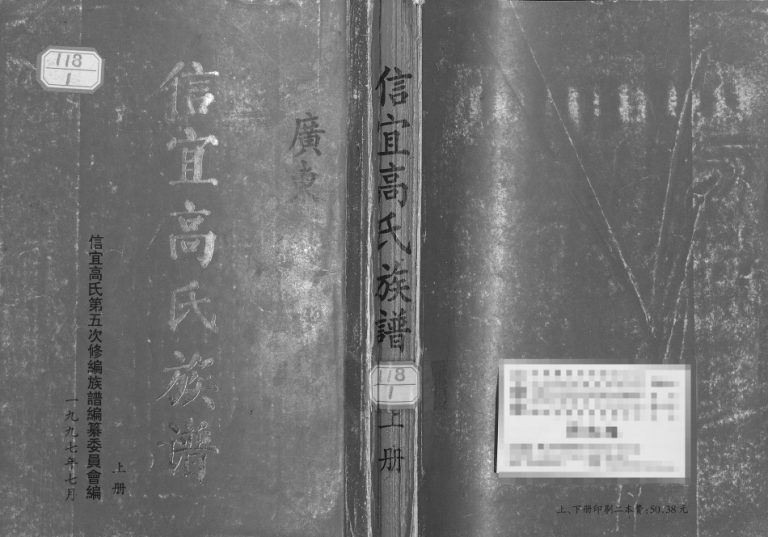 118
1
廣東
信宜高氏族譜
信宜高氏第五次修編族譜編纂委員會編
一九九七年七月
上册
信宜高氏族譜
118
1
上册
上、下册印刷二本費:50.38元